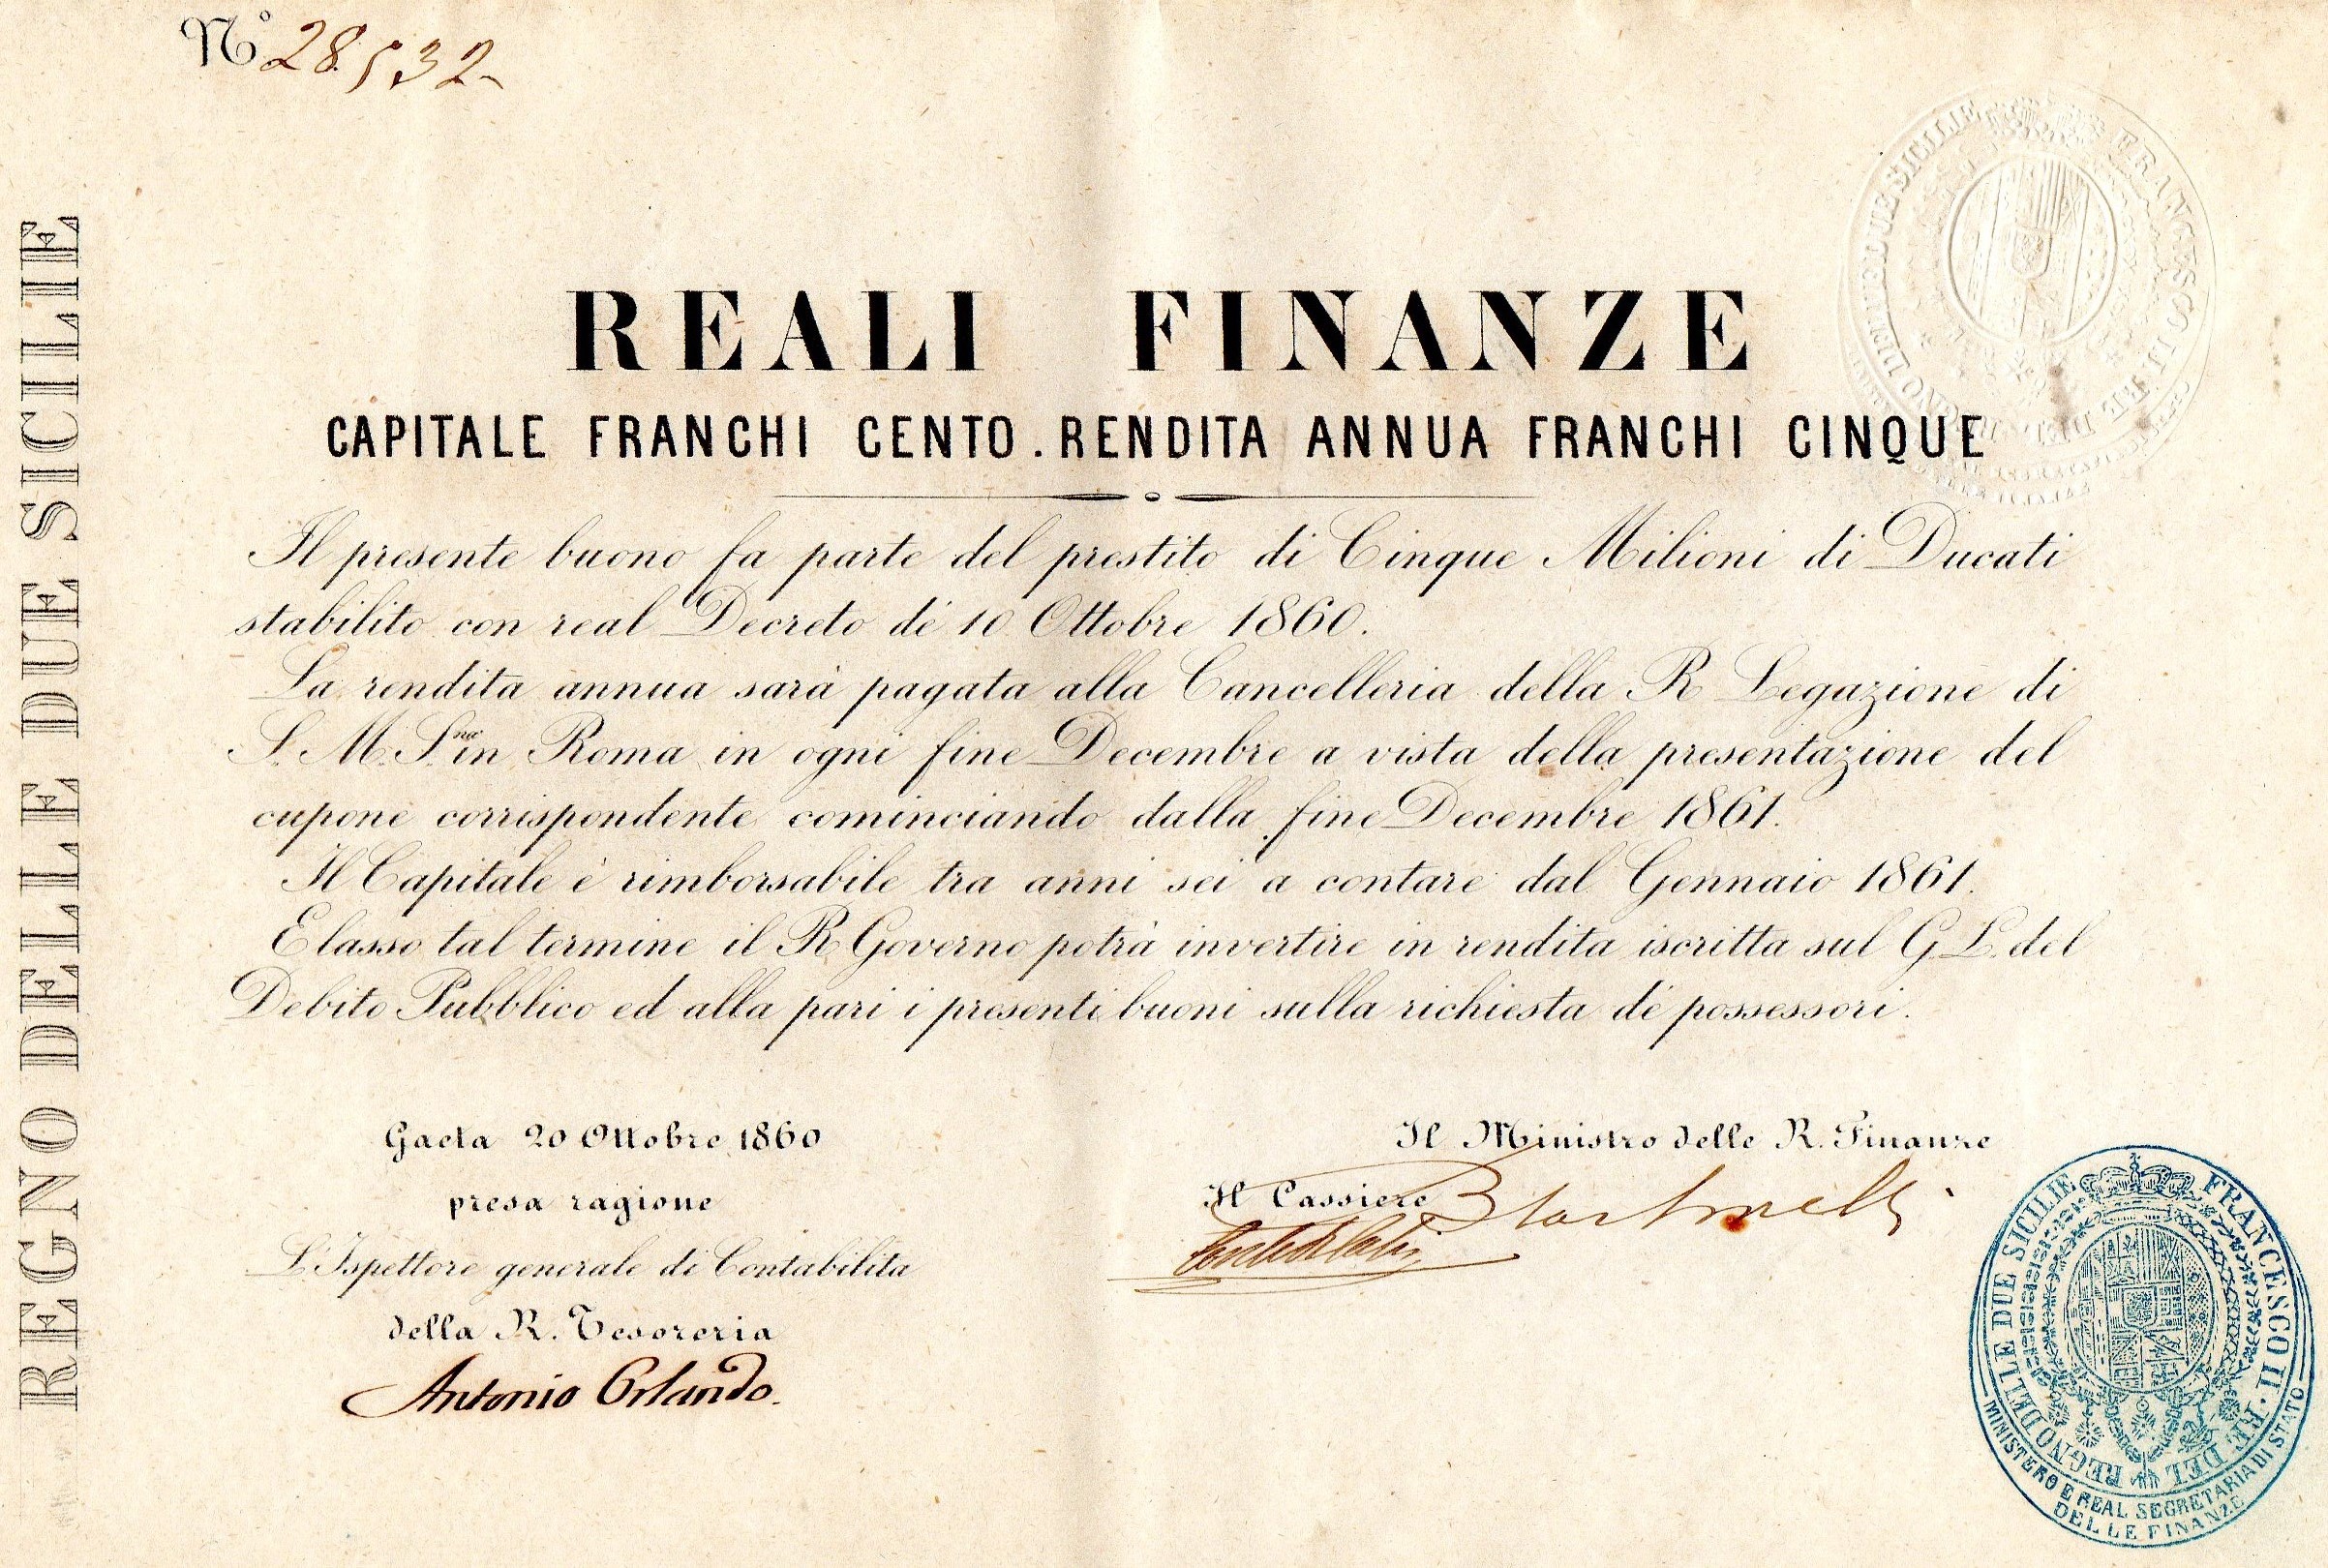 Nº 28532
REGNO DELLE DUE SICILIE
REALI FINANZE
CAPITALE FRANCHI CENTO. RENDITA ANNUA FRANCHI CINQUE
Il presente buono fa parte del prestito di Cinque Milioni di Ducati
stabilito con real Decreto de' 10 Ottobre 1860.
La rendita annua sarà pagata alla Cancelleria della R Legazione di
S. M. S.na in Roma in ogni fine Decembre a vista della presentazione del
cupone corrispondente cominciando dalla fine Decembre 1861.
Il Capitale è rimborsabile tra anni sei a contare dal Gennaio 1861.
Elasso tal termine il R Governo potrà invertire in rendita iscritta sul G. L. del
Debito Pubblico ed alla pari i presenti buoni sulla richiesta de' possessori.
Gaeta 20 Ottobre 1860
presa ragione
L'Ispettore generale di Contabilita
della R. Tesoreria
Antonio Orlando.
Il Ministro delle R. Finanze
Il Cassiere
FRANCESCO II. RE DEL REGNO DELLE DUE SICILIE
FRANCESCO II. RE DEL REGNO DELLE DUE SICILIE
MINISTERO E REAL SEGRETARIA DI STATO
DELLE FINANZE